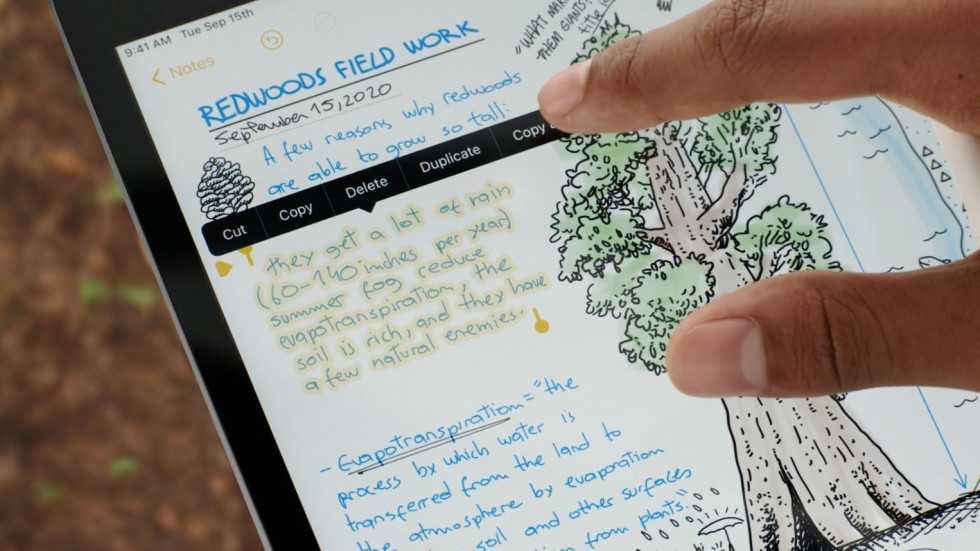 9:41 AM Tue Sep 15th
Notes
"WHAT MAK
THEM GIANTS?
title i
REDWOODS FIELD WORK
September 15, 2020
A few reasons why redwoods
are able to grow so tall:
Cut Copy Delete Duplicate Copy
they get a lot of rain
(60-140 inches per year)
summer fog reduce
evapotranspiration, the
soil is rich, and they have
a few natural enemies.
- Evapotranspiration = "the
process by which water is
transferred from the land to
the atmosphere by evaporation
soil and other surfaces
from plants."
hi